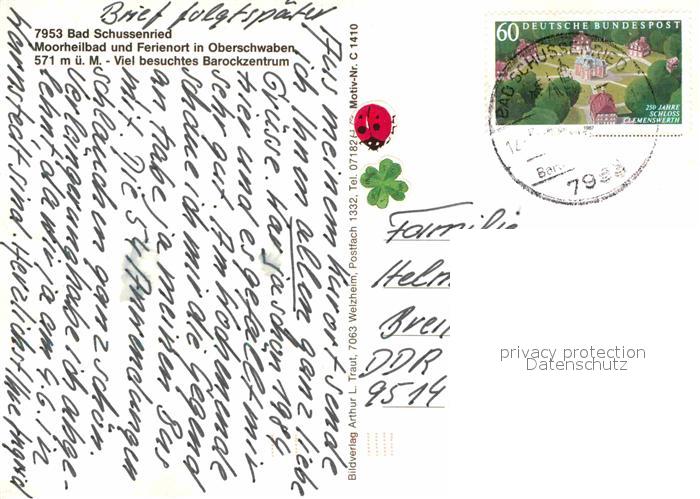 Brief folgt später
7953 Bad Schussenried
Moorheilbad und Ferienort in Oberschwaben
571 m ü. M. - Viel besuchtes Barockzentrum
Aus meinem Kurort sende
ich Ihnen allen ganz liebe
Grüsse. War schon 1984
hier und es gefällt mir
sehr gut. Am Wochenende
schaue ich mir die Gegend
an, habe ja meinen
mit. Die Anwendungen
schlauchen ganz schön.
Verlängerung habe ich abge-
lehnt da wir ja am 6.6. in
sind. Herzlichst Ihre Ingrid
Bildverlag Arthur L. Traut, 7063 Welzheim, Postfach 1332, Tel. 07182 Motiv-Nr. C 1410
60 DEUTSCHE BUNDESPOST
250 JAHRE
SCHLOSS
CLEMENSWERTH
1987
BAD SCHUSSENRIED
Familie
Helm
Brei
DDR
9514
privacy protection
Datenschutz